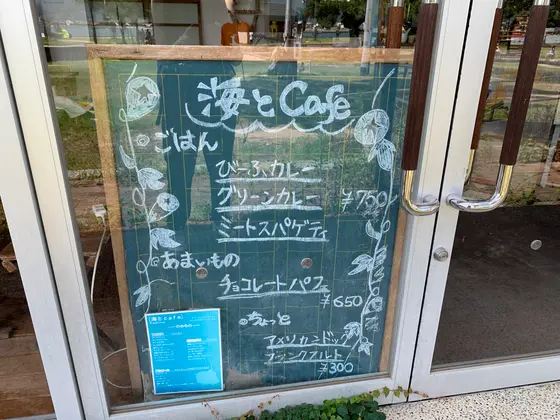 海とCafe
ごはん
びーふカレー
グリーンカレー ¥750
ミートスパゲティ
あまいもの
チョコレートパフェ
¥650
ちょっと
アメリカンドッグ
フランクフルト
¥300